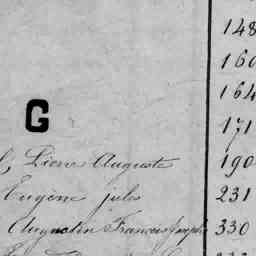 148
160
164
G
171
Pierre Auguste 190
Eugène jules 231
Augustin François Joseph 330